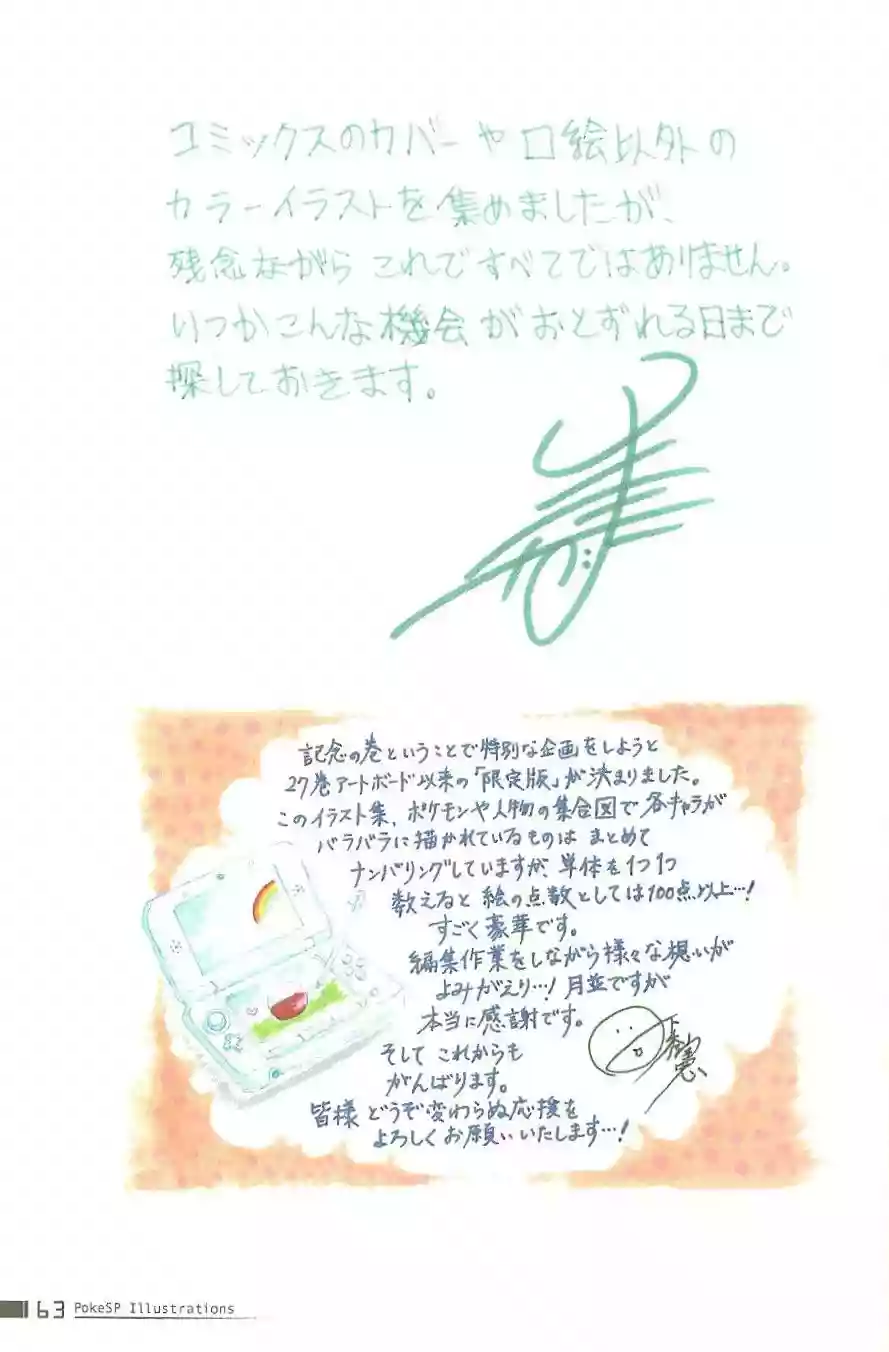 コミックスのカバーや口絵以外の
カラーイラストを集めましたが、
残念ながら これですべてではありません。
いつかこんな機会がおとずれる日まで
探しておきます。
記念の巻ということで特別な企画をしようと
27巻アートボード以来の「限定版」が決まりました。
このイラスト集、ポケモンや人物の集合図で各キャラが
バラバラに描かれているものは まとめて
ナンバリングしていますが、単体を1つ1つ
数えると 絵の点数としては100点以上…!
すごく豪華です。
編集作業をしながら様々な想いが
よみがえり…! 月並ですが
本当に感謝です。
そして これからも
がんばります。
皆様 どうぞ変わらぬ応援を
よろしくお願いいたします…!
63 PokeSP Illustrations